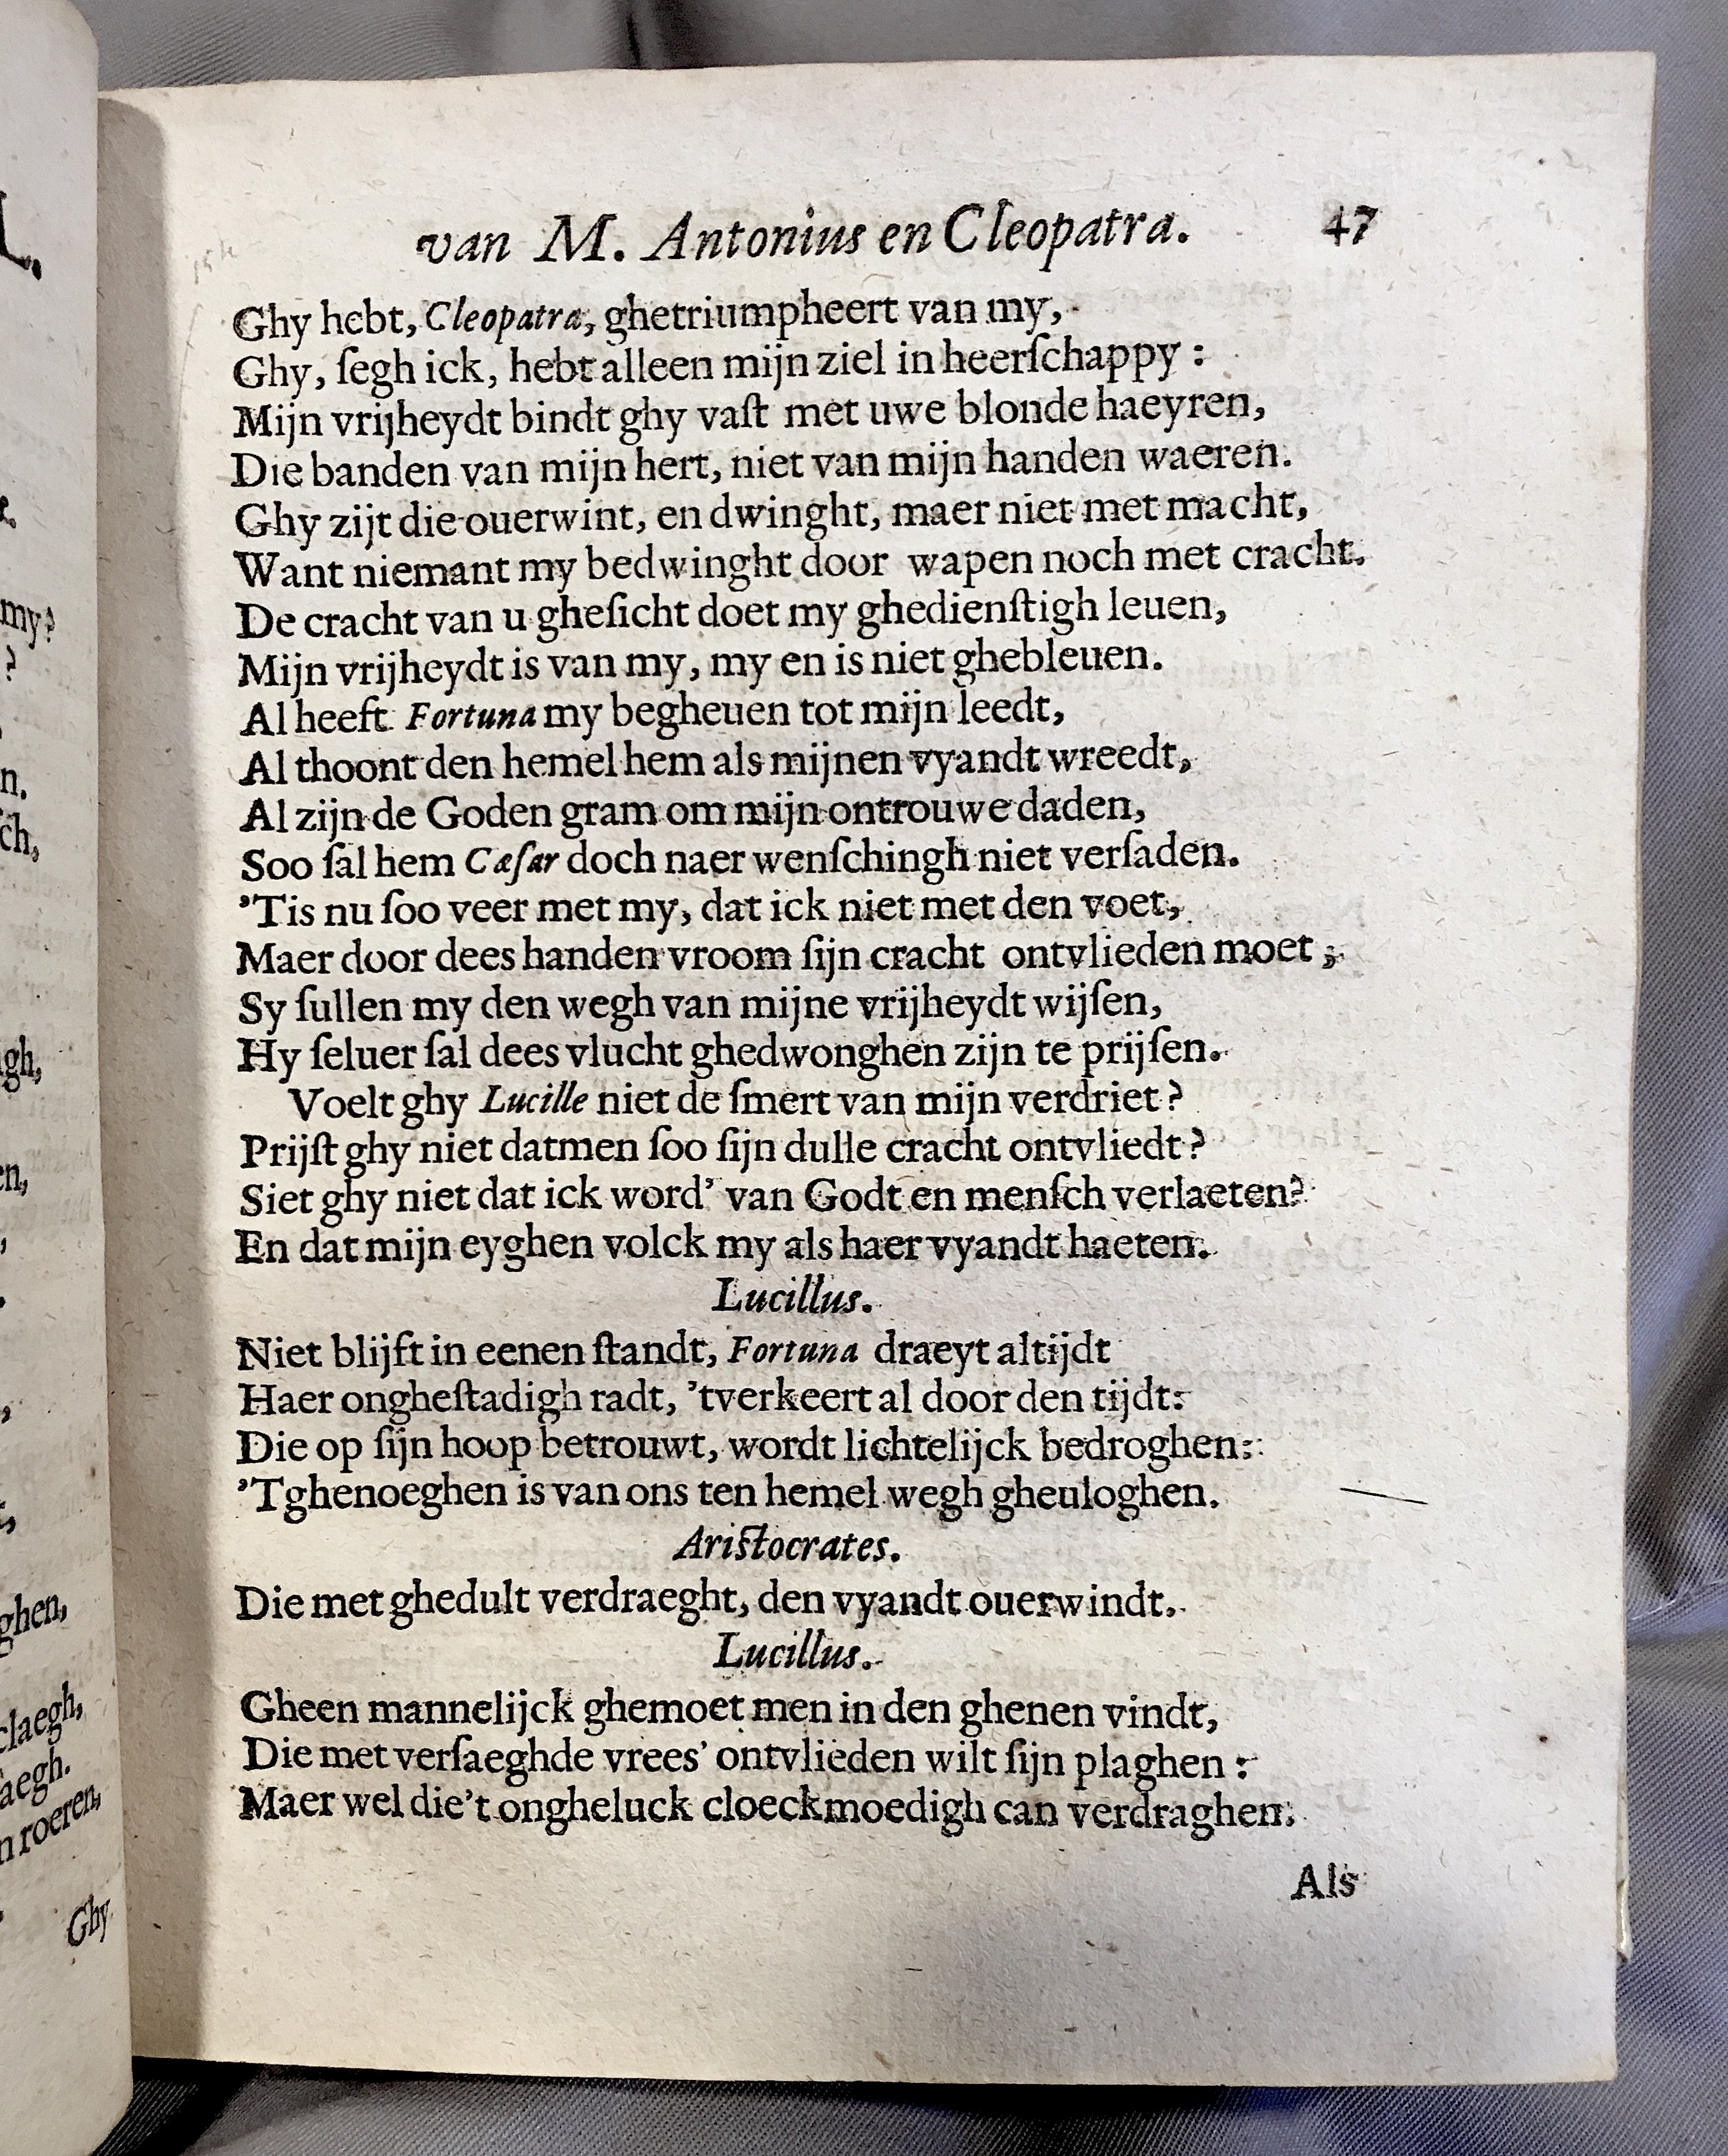 van M. Antonius en Cleopatra. 47
Ghy hebt, Cleopatra, ghetriumpheert van my,
Ghy, ſegh ick, hebt alleen mijn ziel in heerſchappy :
Mijn vrijheydt bindt ghy vaſt met uwe blonde haeyren,
Die banden van mijn hert, niet van mijn handen waeren.
Ghy zijt die ouerwint, en dwinght, maer niet met macht,
Want niemant my bedwinght door wapen noch met cracht.
De cracht van u gheſicht doet my ghedienſtigh leuen,
Mijn vrijheydt is van my, my en is niet ghebleuen.
Al heeft Fortuna my begheuen tot mijn leedt,
Al thoont den hemel hem als mijnen vyandt wreedt,
Al zijn de Goden gram om mijn ontrouwe daden,
Soo ſal hem Cæſar doch naer wenſchingh niet verſaden.
’Tis nu ſoo veer met my, dat ick niet met den voet,
Maer door dees handen vroom ſijn cracht ontvlieden moet ;
Sy ſullen my den wegh van mijne vrijheydt wijſen,
Hy ſeluer ſal dees vlucht ghedwonghen zijn te prijſen.
Voelt ghy Lucille niet de ſmert van mijn verdriet ?
Prijſt ghy niet datmen ſoo ſijn dulle cracht ontvliedt ?
Siet ghy niet dat ick word’ van Godt en menſch verlaeten?
En dat mijn eyghen volck my als haer vyandt haeten.
Lucillus.
Niet blijft in eenen ſtandt, Fortuna draeyt altijdt
Haer ongheſtadigh radt, ’tverkeert al door den tijdt:
Die op ſijn hoop betrouwt, wordt lichtelijck bedroghen:
’Tghenoeghen is van ons ten hemel wegh gheuloghen.
Ariſtocrates.
Die met ghedult verdraeght, den vyandt ouerwindt.
Lucillus.
Gheen mannelijck ghemoet men in den ghenen vindt,
Die met verſaeghde vrees’ ontvlieden wilt ſijn plaghen :
Maer wel die’t ongheluck cloeckmoedigh can verdraghen.
Als
my?
?
n.
ch,
gh,
en,
ghen,
claegh,
aegh.
n roeren,
Ghy